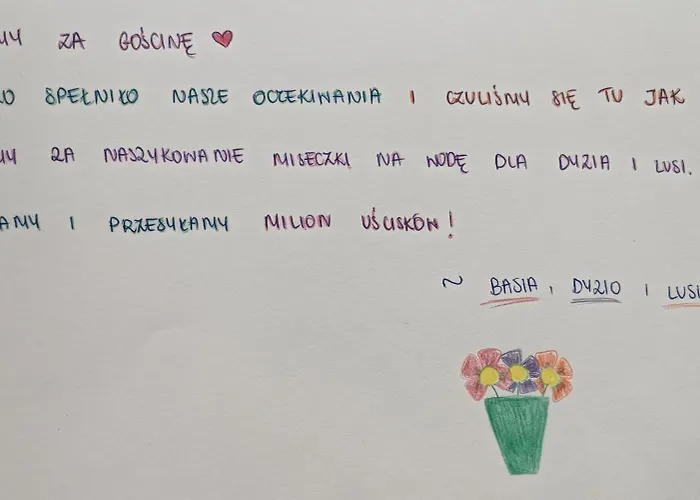 MY ZA GOŚCINĘ
ŁO SPEŁNIŁO NASZE OCZEKIWANIA I CZULIŚMY SIĘ TU JAK
MY ZA NASZYKOWANIE MISECZKI NA WODĘ DLA DYZIA I LUSI.
AMY I PRZESYŁAMY MILION UŚCISKÓW!
~ BASIA, DYZIO I LUSI